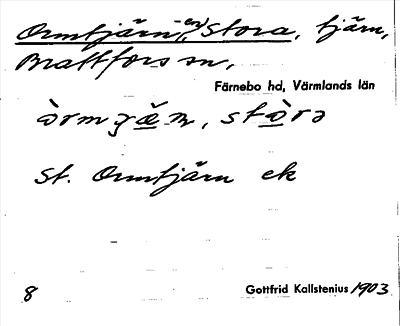 Ormtjärn(-en), Stora, tjärn,
Brattfors sn,
Färnebo hd, Värmlands län
st. Ormtjärn ek
8
Gottfrid Kallstenius 1903